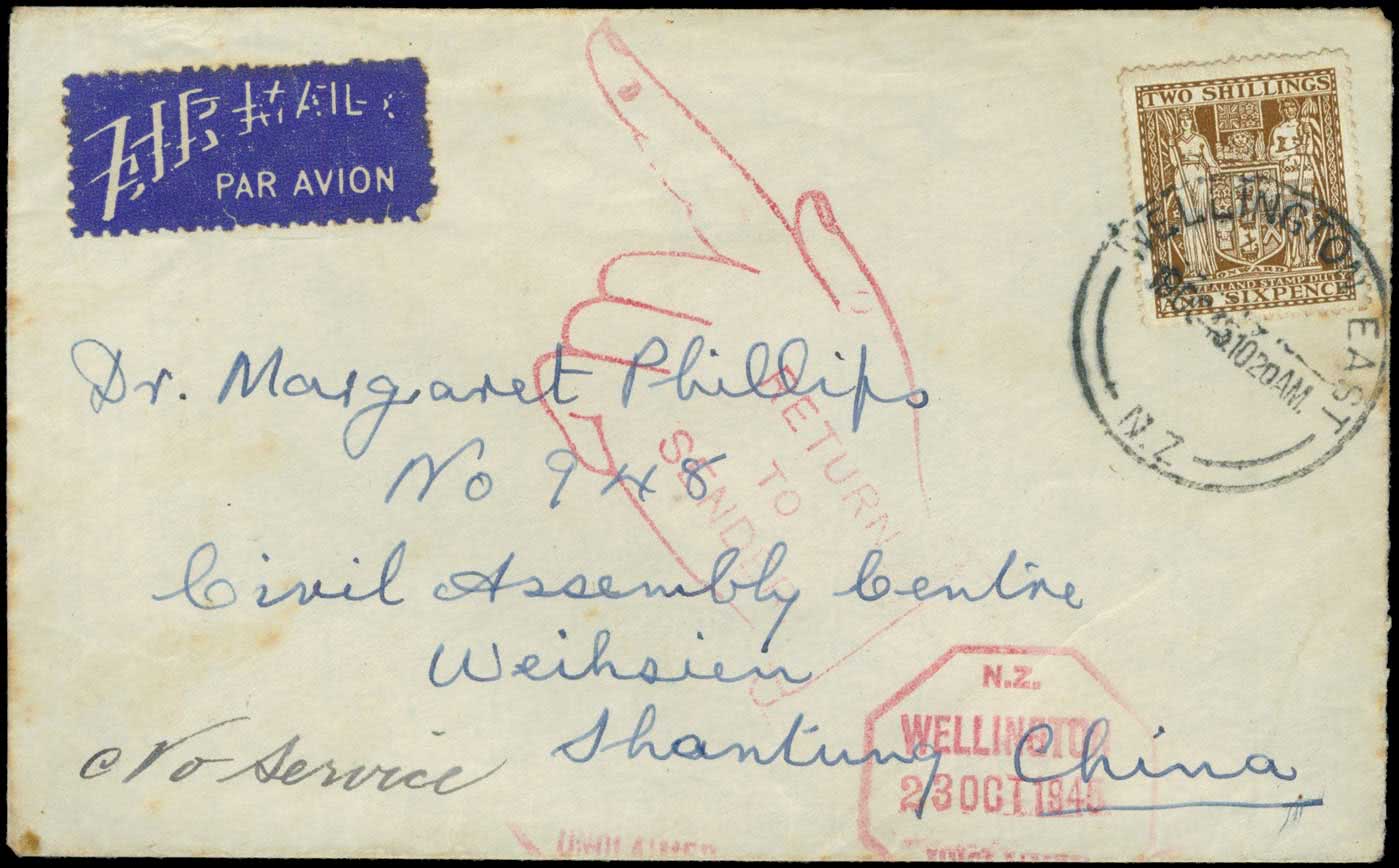 AIR MAIL
PAR AVION
TWO SHILLINGS
AND SIXPENCE
WELLINGTON EAST
1020AM.
N.Z.
RETURN
TO
SENDER
Dr. Margaret Phillips
No 948
Civil Assembly Centre
Weihsien
Shantung China
No Service
N.Z.
WELLINGTON
23 OCT 1945
UNCLAIMED